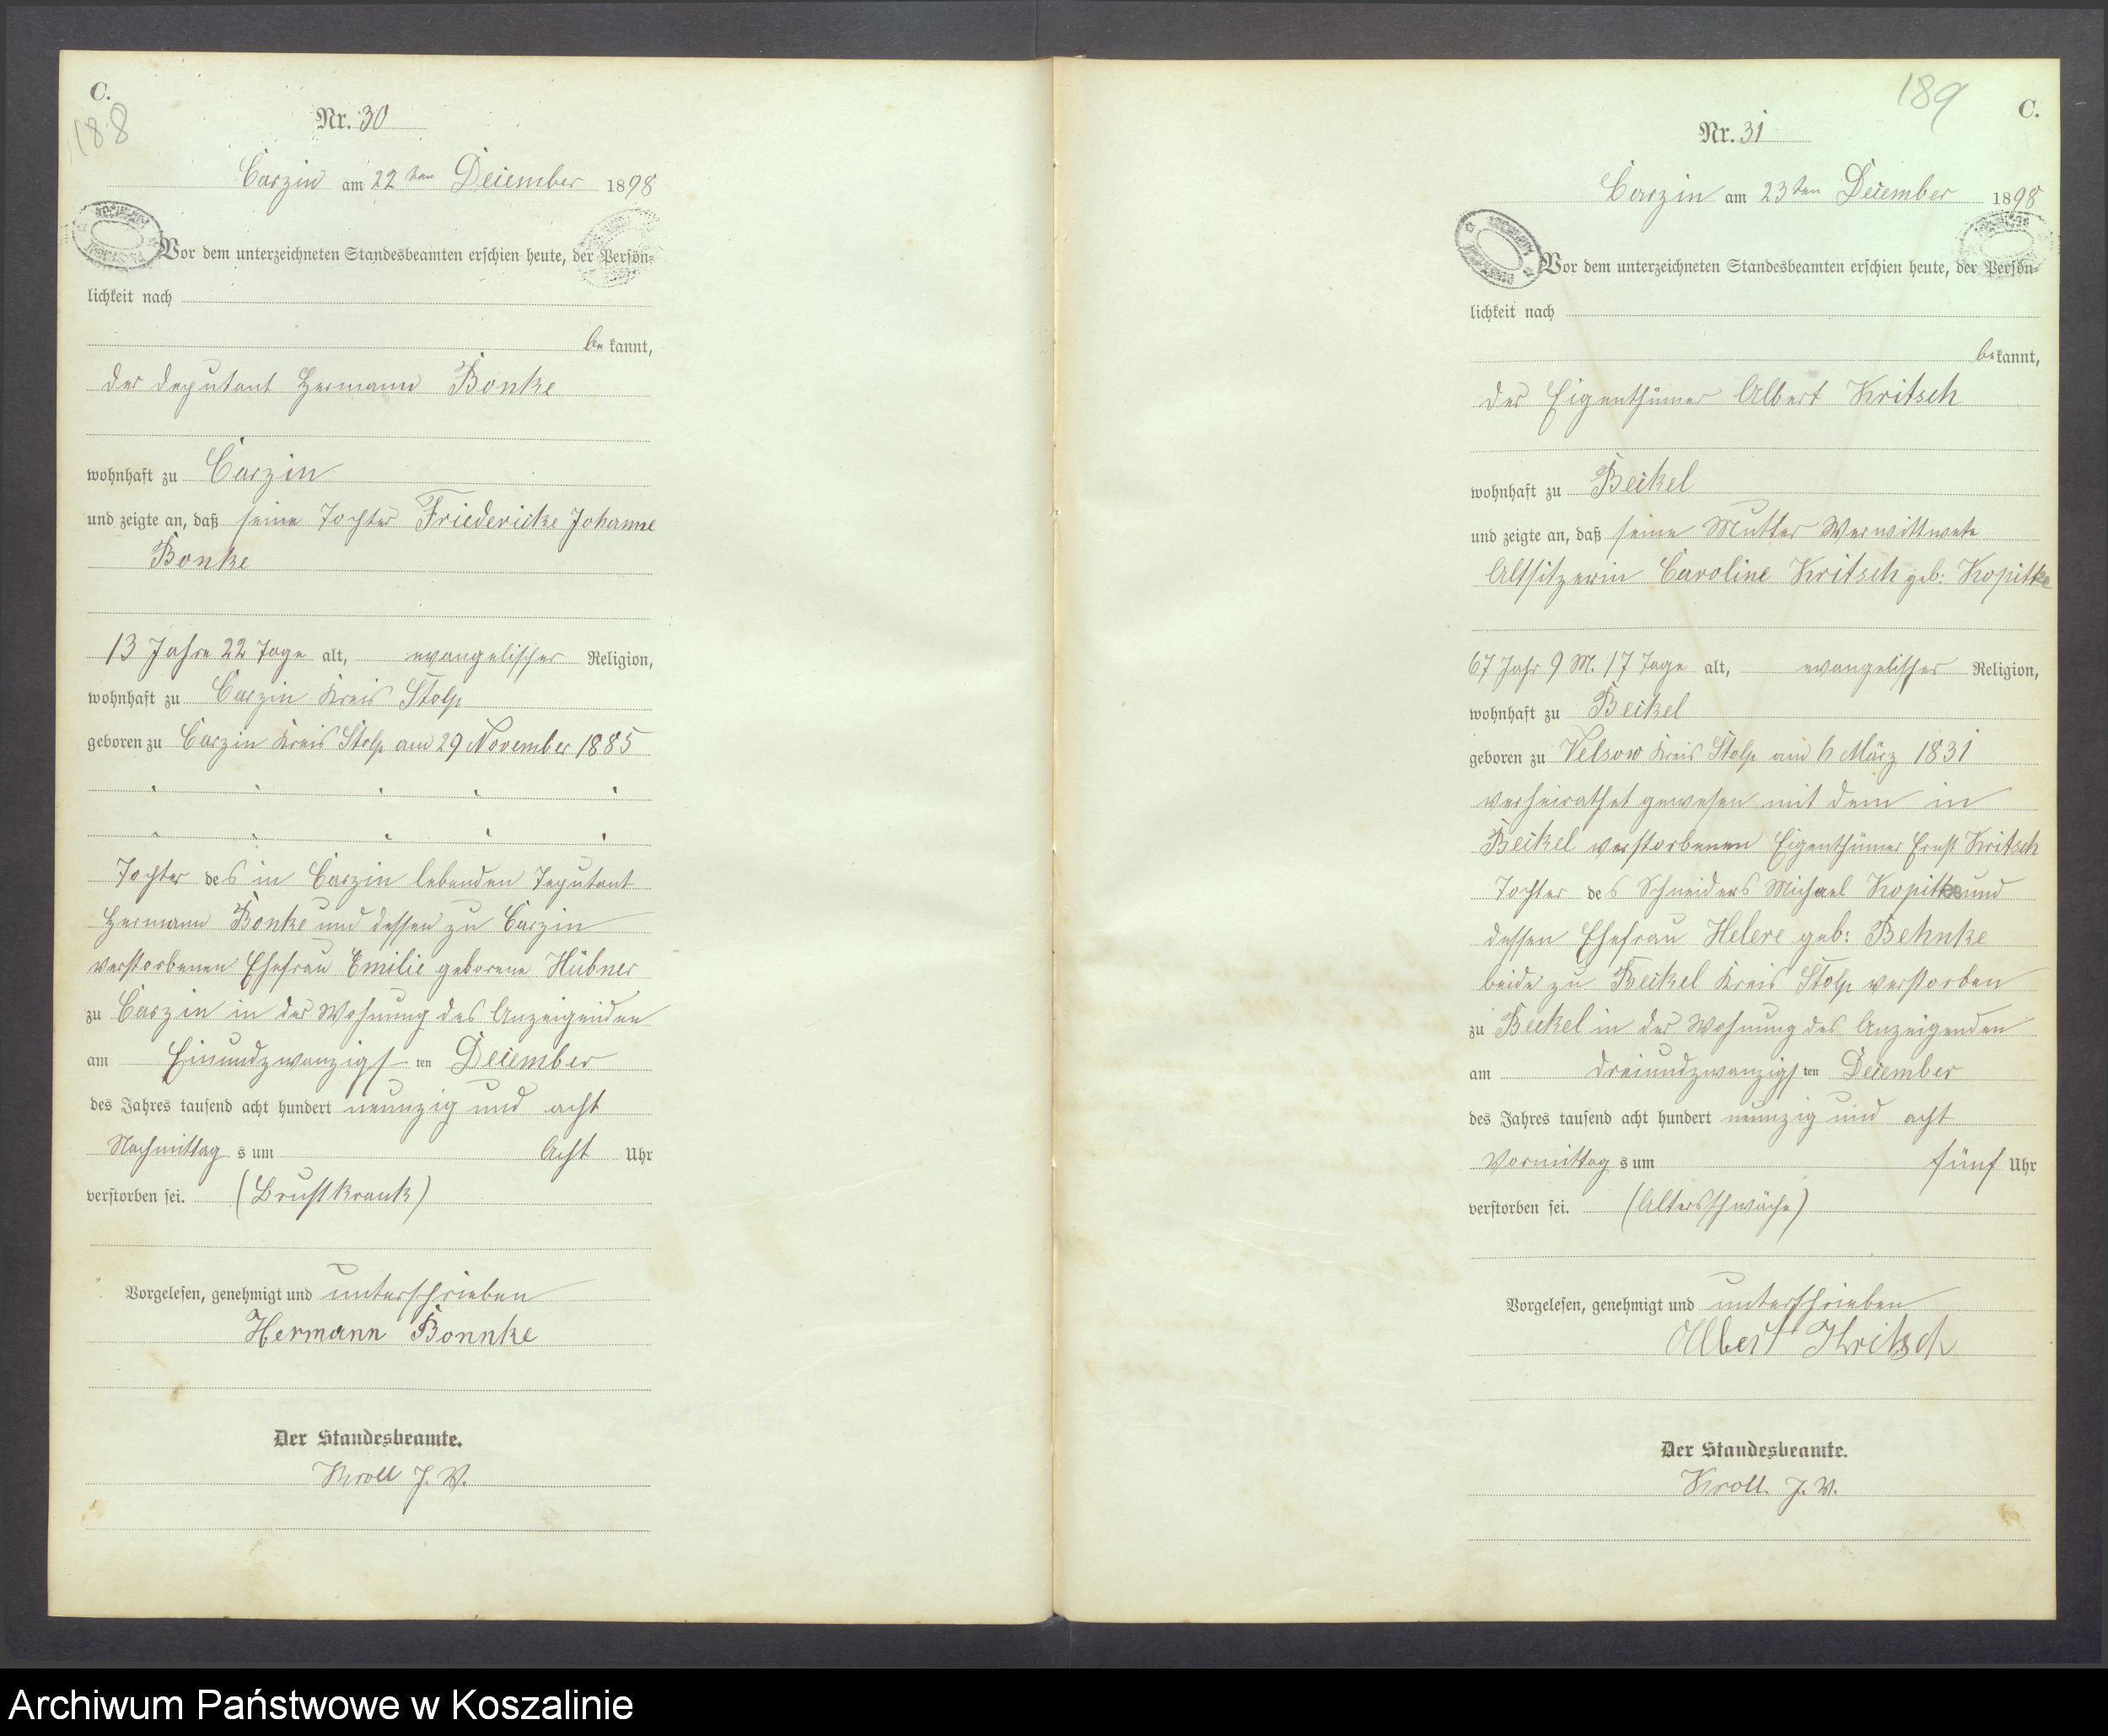 C.
188
Nr. 30
Carzin am 22ten December 1898
Vor dem unterzeichneten Standesbeamten erschien heute, der Persön-
lichkeit nach
bekannt,
der Deputant Hermann Bonke
wohnhaft zu Carzin
und zeigte an, daß seine Tochter Friedericke Johanne
Bonke
13 Jahre 22 Tage alt, evangelischer Religion,
wohnhaft zu Carzin Kreis Stolp
geboren zu Carzin Kreis Stolp am 29 November 1885
Tochter des in Carzin lebenden Deputant
Hermann Bonke und dessen zu Carzin
verstorbenen Ehefrau Emilie geborene Hübner
zu Carzin in der Wohnung des Anzeigenden
am Einundzwanzigsten December
des Jahres tausend acht hundert neunzig und acht
Nachmittags um Acht Uhr
verstorben sei. (Brustkrank)
Vorgelesen, genehmigt und unterschrieben
Hermann Bonnke
Der Standesbeamte.
Kroll J. V.
189
C.
Nr. 31
Carzin am 23ten December 1898
Vor dem unterzeichneten Standesbeamten erschien heute, der Persön-
lichkeit nach
bekannt,
der Eigenthümer Albert Kritsch
wohnhaft zu Beckel
und zeigte an, daß seine Mutter Verwittwete
Altsitzerin Caroline Kritsch geb: Kopitke
67 Jahr 9 M. 17 Tage alt, evangelischer Religion,
wohnhaft zu Beckel
geboren zu Velsow Kreis Stolp am 6 März 1831
verheirathet gewesen mit dem in
Beckel verstorbenen Eigenthümer Ernst Kritsch
Tochter des Schneiders Michael Kopitke und
dessen Ehefrau Helene geb: Behnke
beide zu Beckel Kreis Stolp verstorben
zu Beckel in der Wohnung des Anzeigenden
am dreiundzwanzigsten December
des Jahres tausend acht hundert neunzig und acht
Vormittags um fünf Uhr
verstorben sei. (Altersschwäche)
Vorgelesen, genehmigt und unterschrieben
Albert Kritsch
Der Standesbeamte.
Kroll. J. V.
Archiwum Państwowe w Koszalinie